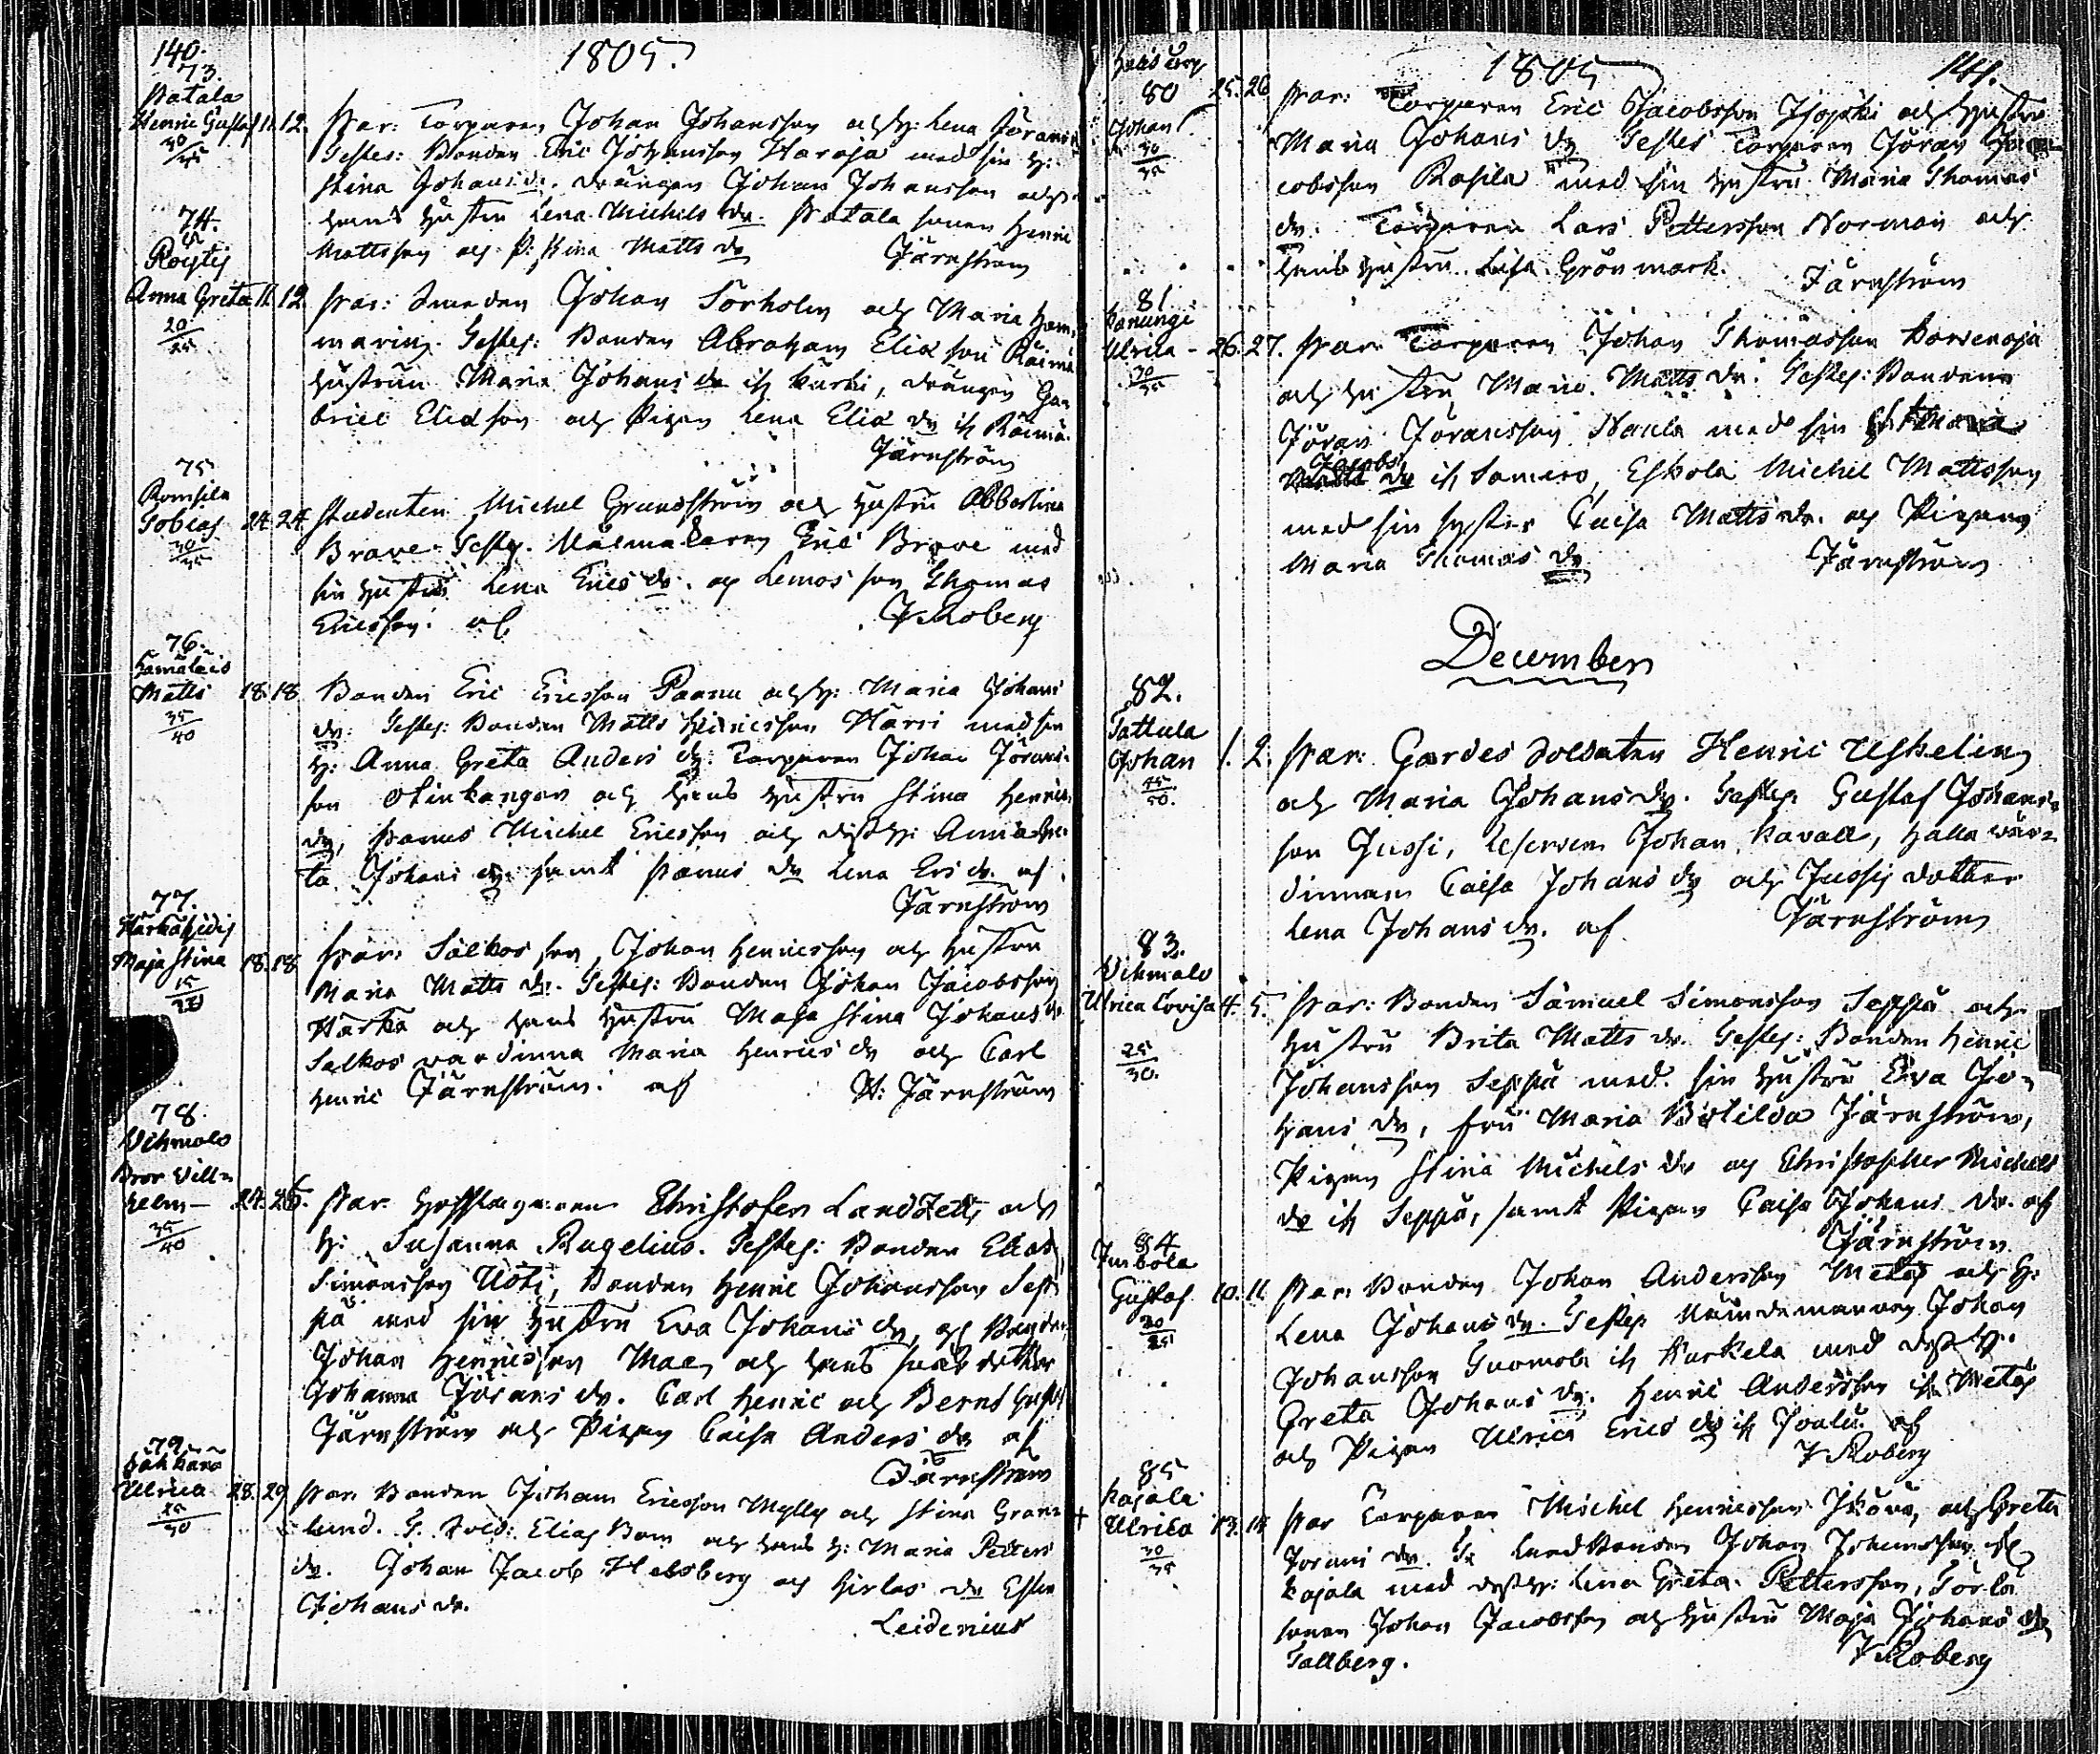 140.
1805.
73.
Patala
Henric Gustaf 11. 12.
30/35
Par: Torparen Johan Johansson och H: Lena Jörans
Testes: Bonden Eric Johansson Haroja med sin H:
Stina Johans dr. drängen Johan Johansson och
hans Hustru Lena Michels dr. Patala sonen Henric
Mattsson och P: Stina Matts dr
Järnström
74.
Anna Greta 11. 12
20/25
Par: Smeden Johan Torholm och Maria Ham-
marin. Testes: Bonden Abraham Eliæ son Räimä
Hustrun Maria Johans dr ifr Kurki, drängen Ga-
briel Eliæ son och Pigan Lena Eliæ dr ifr Räimä
Järnström
75
Romsila
Tobias 24. 24
30/35
Studenten Michel Grundström och Hustru Albertina
Brave. Testes. Målmakaren Eric Brave med
sin Hustru Lena Erics dr. och Lemos son Thomas
Ericsson. af
J Moberg
76.
Hämäläis
Matts 18. 18
35/40
Bonden Eric Ericsson Paanu och H: Maria Johans
dr: Testes: Bonden Matts Henricsson Harri med sin
H: Anna Greta Anders dr: Torparen Johan Jörans-
son Otinkangas och hans Hustru Stina Henrics
dr, Paanus Michel Ericsson och dess H: Anna Gre-
ta Johans dr samt Paanus dr Lena Ers dr. af
Järnström
77.
Maja Stina 18. 18
15/20
Par: Salkos son, Johan Henricsson och Hustru
Maria Matts dr. Testes: Bonden Johan Jacobsson
Härkä och hans Hustru Maja Stina Johans dr
Salkos värdinna Maria Henrics dr och Carl
Henric Järnström. af
H: Järnström
78.
Vehmalo
Bror Vill-
helm - 24. 25.
35/40
Par. Hofslagaren Christofer Landzett, och
H: Susanna Rugelius. Testes: Bonden Elias
Simonsson Uoti, Bonden Henric Johansson Sep-
pä med sin Hustru Eva Johans dr, och Bonden
Johan Henricsson Mae, och hans
Johanna Jörans dr. Carl Henric och Bernd Gustaf
Järnström och Pigan Caisa Anders dr af
Järnström
79.
Ulrica 28. 29
25/30
Par: Bonden Johan Ericsson Mylly och Stina Gran-
lund. T. Sold: Elias Bom och hans H: Maria Petters
dr. Johan Jacob Helsberg och Hirlas dr Ester
Johans dr.
Leidenius
1805
141.
80 25. 26
Johan
30/35
Par: Torparen Eric Jacobsson Isopahi och Hustru
Maria Johans dr Testes Torparen Jöran Ja-
cobsson Rosila med sin Hustru Maria Thomas
dr. Torparen Lars Pettersson Norman och
hans Hustru Lisa Grönmark.
Järnström
81.
Kanungi
Ulrica - 26. 27.
30/35
Par: Torparen Johan Thomasson Korvenoja
och Hustru Maria Matts dr. Testes: Bonden
Jöran Jöransson Naula med sin H: Maria
Jacobs dr ifr Somero, Eskola Michel Mattsson
med sin syster Caisa Matts dr. och Pigan
Maria Thomas dr
Järnström
December
82.
Tattula
Johan 1. 2.
45/50.
Par: Gardes Soldaten Henric Uskelin
och Maria Johans dr. Testes Gustaf Johans-
son Jussi, Reserven Johan Kavall, Halla vär-
dinnan Caisa Johans dr och Jussis dotter
Lena Johans dr. af
Järnström
83.
Vehmalo
Ulrica Lovisa 4. 5.
25/30.
Par: Bonden Samuel Simonsson Seppä och
Hustru Brita Matts dr. Testes: Bonden Henric
Johansson Seppä med sin Hustru Eva Jo-
hans dr, Fru Maria Botilda Järnström,
Pigan Stina Michels dr och Christopher Michels
dr ifr Seppä, samt Pigan Caisa Johans dr. af
Järnström
84
Junbola
Gustaf 10. 11
20/25
Par: Bonden Johan Andersson Metos och H:
Lena Johans dr. Testes Nämndemannen Johan
Johansson Tuomola ifr Kurkela med dess H:
Greta Johans dr. Henric Andersson ifr Metos
och Pigan Ulrica Erics dr ifr Joulu. af
J Moberg
85
Kajala
+ Ulrica 13. 14
30/35
Par Torparen Michel Henricsson Iskäre, och Greta
Jörans dr. Ts Landbonden Johan Johansson af
Kajala med dess H: Lena Greta Pettersson, Torla
sonen Johan Jacobsson och Hustru Maja Johans dr
Tallberg.
J Moberg